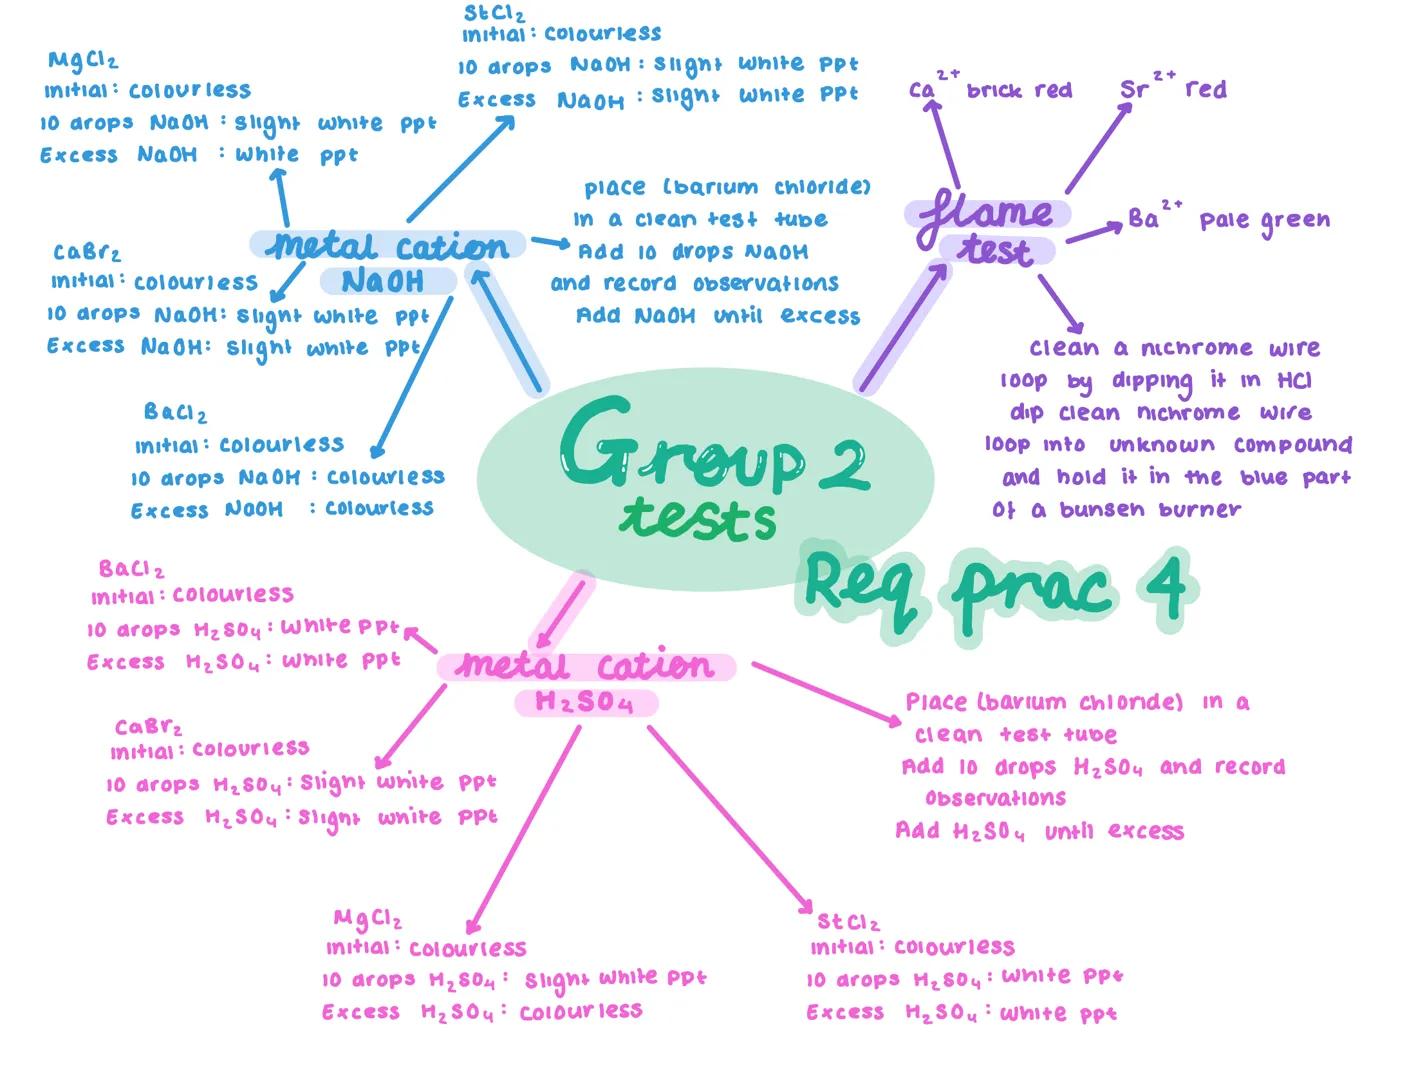 StCl₂
initial: colourless
10 drops NaOH: slight white ppt
Excess NaOH: slight white ppt
MgCl₂
initial: colourless
10 drops NaOH: slight white ppt
Excess NaOH: white ppt
metal cation
NaOH
place (barium chloride)
in a clean test tube
Add 10 drops NaOH
and record observations
Add NaOH until excess
CaBr₂
initial: colourless
10 drops NaOH: slight white ppt
Excess NaOH: slight white ppt
BaCl₂
initial: colourless
10 drops NaOH: colourless
Excess NaOH: colourless
Ca²⁺ brick red
Sr²⁺ red
flame
test
Ba²⁺ pale green
clean a nichrome wire
loop by dipping it in HCl
dip clean nichrome wire
loop into unknown compound
and hold it in the blue part
of a bunsen burner
Group 2
tests
Req prac 4
BaCl₂
initial: colourless
10 drops H₂SO₄: white ppt
Excess H₂SO₄: white ppt
metal cation
H₂SO₄
CaBr₂
initial: colourless
10 drops H₂SO₄: slight white ppt
Excess H₂SO₄: slight white ppt
Place (barium chloride) in a
clean test tube
Add 10 drops H₂SO₄ and record
observations
Add H₂SO₄ until excess
MgCl₂
initial: colourless
10 drops H₂SO₄: slight white ppt
Excess H₂SO₄: colourless
StCl₂
initial: colourless
10 drops H₂SO₄: white ppt
Excess H₂SO₄: white ppt